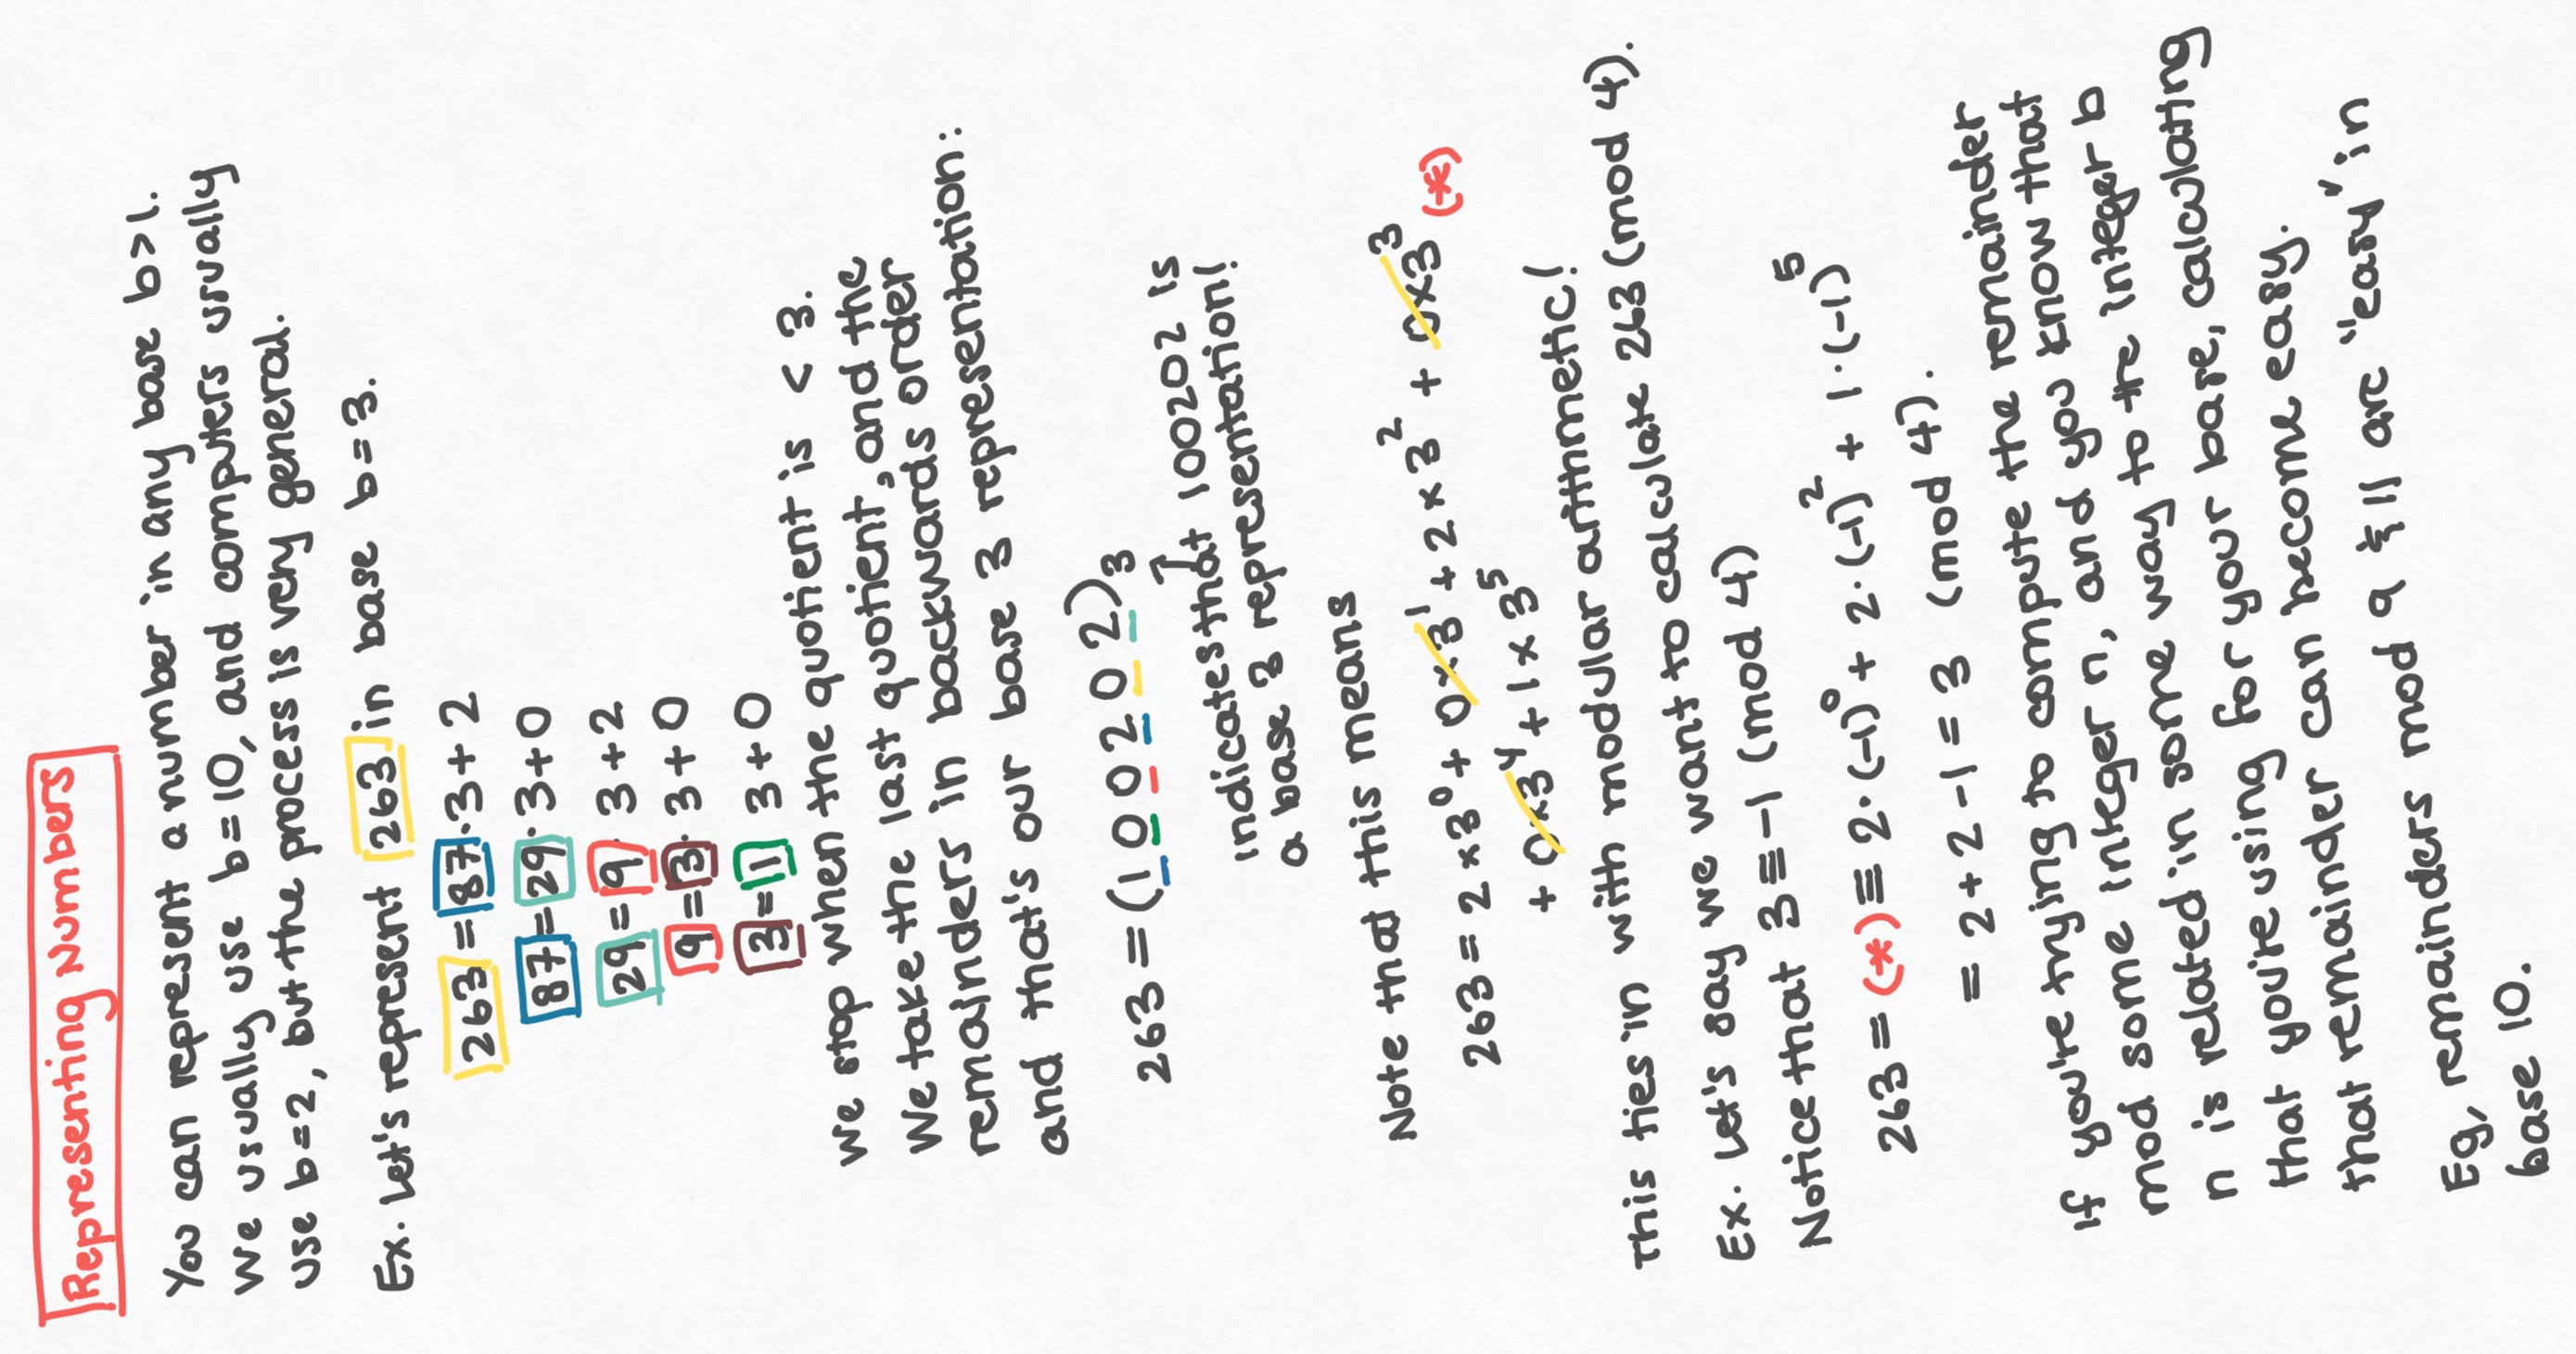 Representing Numbers
You can represent a number in any base b>1.
We usually use b=10, and computers usually
use b=2, but the process is very general.
Ex. Let's represent 263 in base b=3.
263 = 87·3+2
87=29·3+0
29=9·3+2
9=3·3+0
3=1 3+0
We stop when the quotient is < 3.
We take the last quotient, and the
remainders in backwards order
and that's our base 3 representation:
263 = (1 0 0 2 0 2)₃
↑
indicates that 100202 is
a base 3 representation!
Note that this means
263 = 2×3⁰+ 0×3¹+2×3² + 0×3³ (*)
+ 0×3⁴+1×3⁵
This ties in with modular arithmetic!
Ex. Let's say we want to calculate 263 (mod 4).
Notice that 3≡-1 (mod 4)
263 = (*) ≡ 2·(-1)⁰+ 2·(-1)² + 1·(-1)⁵
= 2+2-1=3 (mod 4).
If you're trying to compute the remainder
mod some integer n, and you know that
n is related in some way to the integer b
that you're using for your base, calculating
that remainder can become easy.
Eg, remainders mod 9 & 11 are "easy" in
base 10.